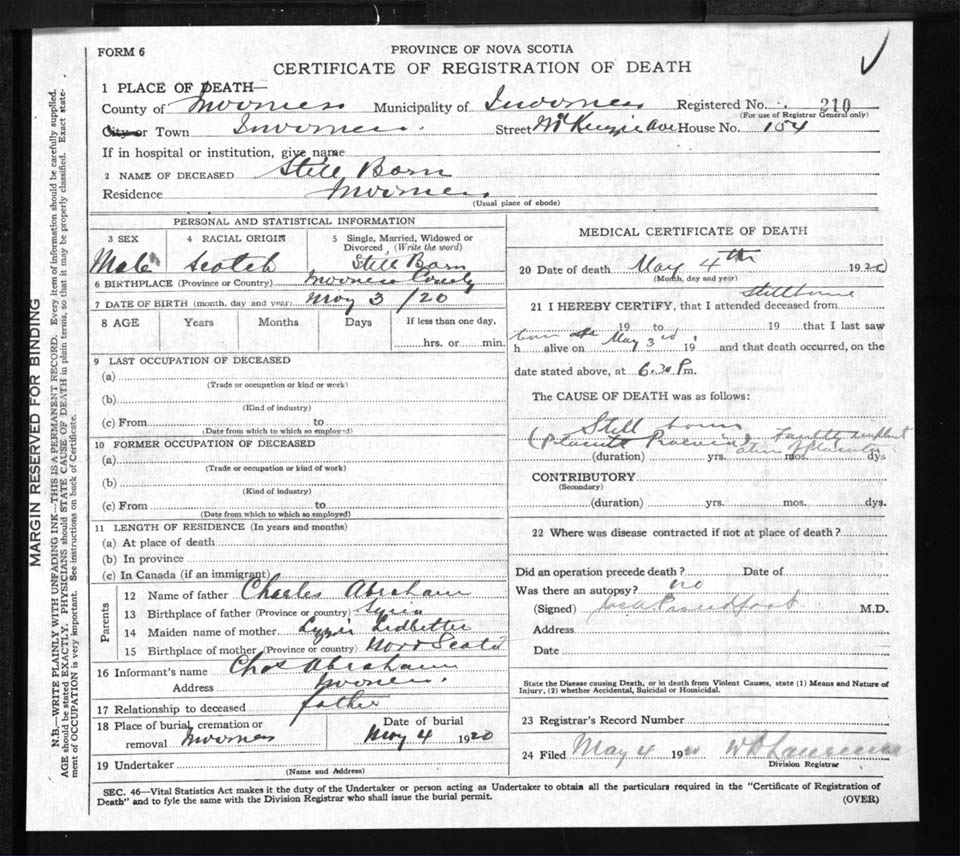 FORM 6
PROVINCE OF NOVA SCOTIA
CERTIFICATE OF REGISTRATION OF DEATH
1 PLACE OF DEATH—
County of Inverness Municipality of Inverness Registered No. 210
(For use of Registrar General only)
City or Town Inverness. Street McKenzie Ave House No. 154
If in hospital or institution, give name
2 NAME OF DECEASED Still Born
Residence Inverness
(Usual place of abode)
PERSONAL AND STATISTICAL INFORMATION
3 SEX 4 RACIAL ORIGIN 5 Single, Married, Widowed or Divorced (Write the word)
Male Scotch Still Born
6 BIRTHPLACE (Province or Country) Inverness County
7 DATE OF BIRTH (month, day and year) May 3 /20
8 AGE Years Months Days If less than one day,
hrs. or min.
9 LAST OCCUPATION OF DECEASED
(a)
(Trade or occupation or kind or work)
(b)
(Kind of industry)
(c) From to
(Date from which to which so employed)
10 FORMER OCCUPATION OF DECEASED
(a)
(Trade or occupation or kind of work)
(b)
(Kind of industry)
(c) From to
(Date from which to which so employed)
11 LENGTH OF RESIDENCE (In years and months)
(a) At place of death
(b) In province
(c) In Canada (if an immigrant)
Parents
12 Name of father Charles Abraham
13 Birthplace of father (Province or country) Syria
14 Maiden name of mother Lizzie Ledbetter
15 Birthplace of mother (Province or country) Nova Scotia
16 Informant's name Chas Abraham
Address Inverness.
17 Relationship to deceased father
18 Place of burial, cremation or removal Inverness Date of burial May 4 1920
19 Undertaker
(Name and Address)
MEDICAL CERTIFICATE OF DEATH
20 Date of death May 4th 1920
(Month, day and year)
21 I HEREBY CERTIFY, that I attended deceased from
Stillborn
19 to 19 that I last saw
born May 3rd
h alive on 19 and that death occurred, on the
date stated above, at 6.30 P.m.
The CAUSE OF DEATH was as follows:
Still born
(Placenta Praevia)
(duration) yrs. mos. dys
CONTRIBUTORY
(Secondary)
(duration) yrs. mos. dys.
22 Where was disease contracted if not at place of death?
Did an operation precede death? Date of
Was there an autopsy? no
(Signed) Proudfoot M.D.
Address
Date
State the Disease causing Death, or in death from Violent Causes, state (1) Means and Nature of
Injury, (2) whether Accidental, Suicidal or Homicidal.
23 Registrar's Record Number
24 Filed May 4 1920 Lawrence
Division Registrar
SEC. 46—Vital Statistics Act makes it the duty of the Undertaker or person acting as Undertaker to obtain all the particulars required in the "Certificate of Registration of
Death" and to fyle the same with the Division Registrar who shall issue the burial permit.
(OVER)
MARGIN RESERVED FOR BINDING
N.B.—WRITE PLAINLY WITH UNFADING INK—THIS IS A PERMANENT RECORD. Every item of information should be carefully supplied.
AGE should be stated EXACTLY. PHYSICIANS should STATE CAUSE OF DEATH in plain terms, so that it may be properly classified. Exact state-
ment of OCCUPATION is very important. See instructions on back of Certificate.